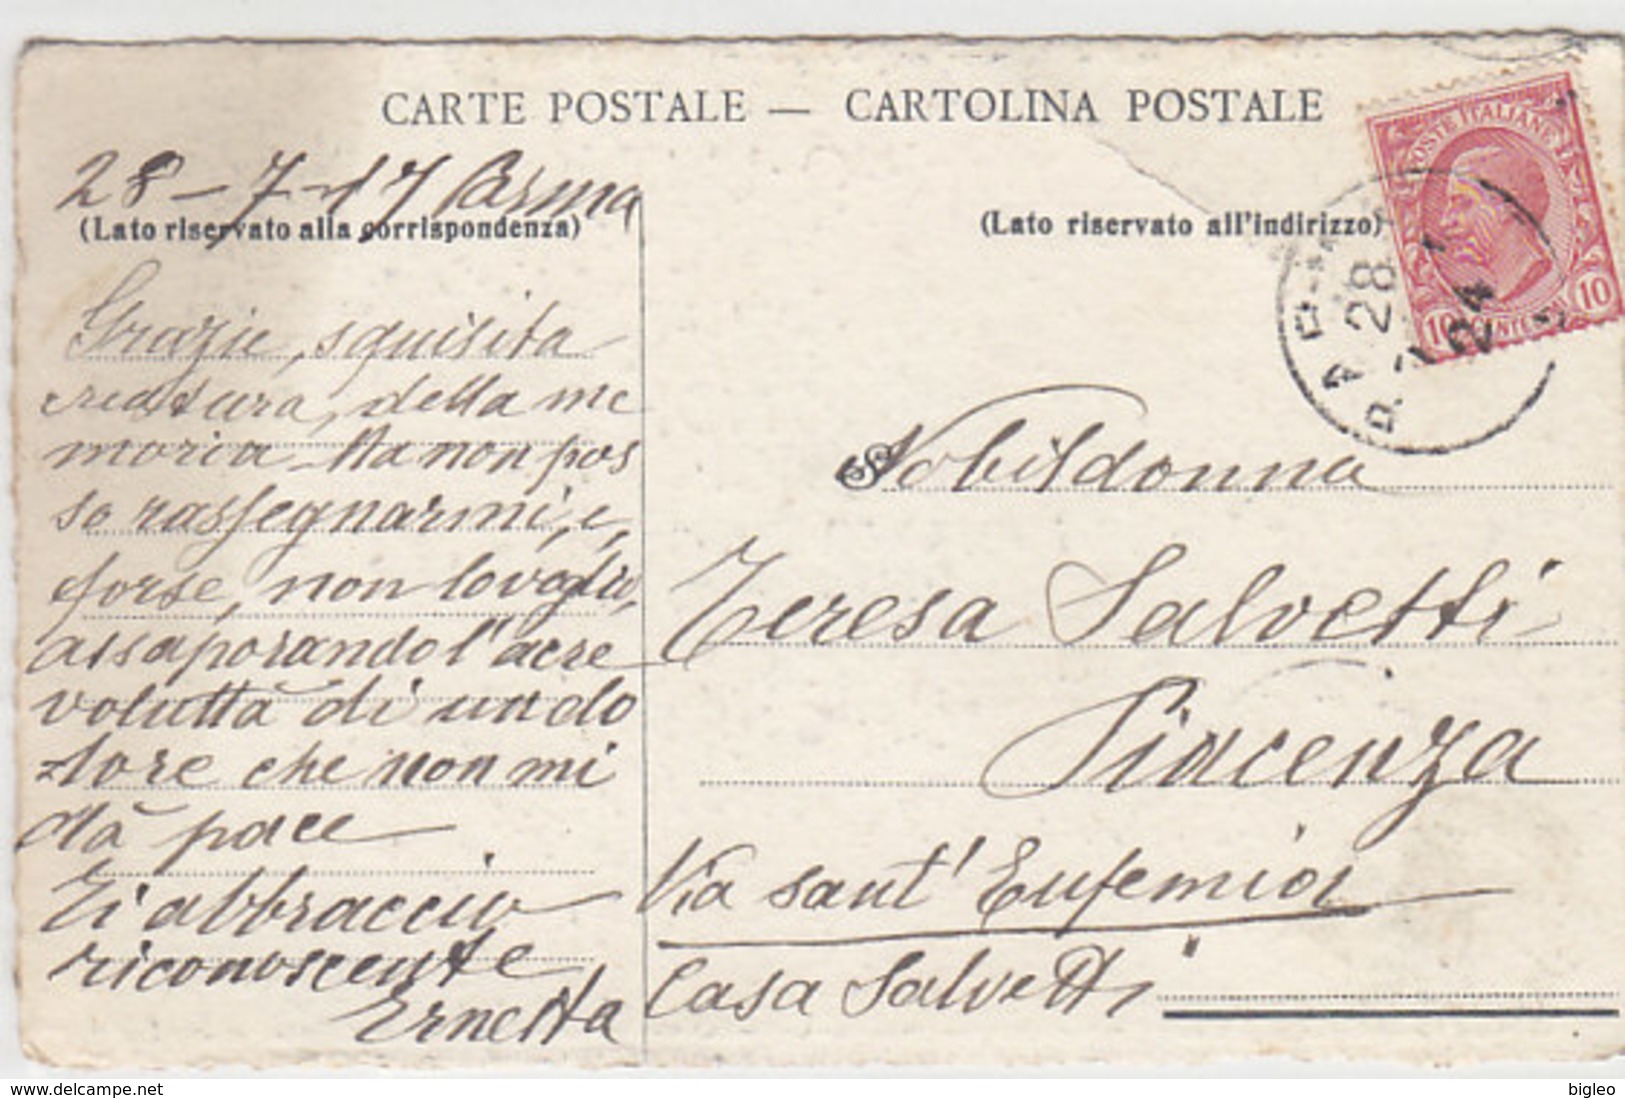 CARTE POSTALE — CARTOLINA POSTALE
28-7-17 Parma
(Lato riservato alla corrispondenza)
Grazie, squisita
creatura, della me
moria. Ma non pos
so rassegnarmi, e,
forse, non lo voglio,
assaporando l'acre
voluttà di un do
lore che non mi
dà pace
Ti abbraccio
riconoscente
Ernetta
(Lato riservato all'indirizzo)
POSTE ITALIANE
10 CENTESIMI 10
28
24
Nobildonna
Teresa Salvetti
Piacenza
Via Sant'Eufemia
Casa Salvetti
www.delcampe.net
bigleo